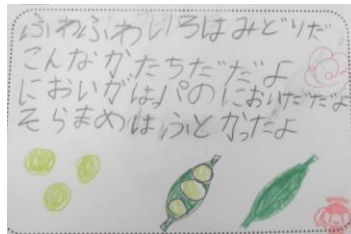 ふわふわいろはみどりだ
こんなかたちだだよ
においがはパのにおいだだよ
そらまめはふとかっただよ